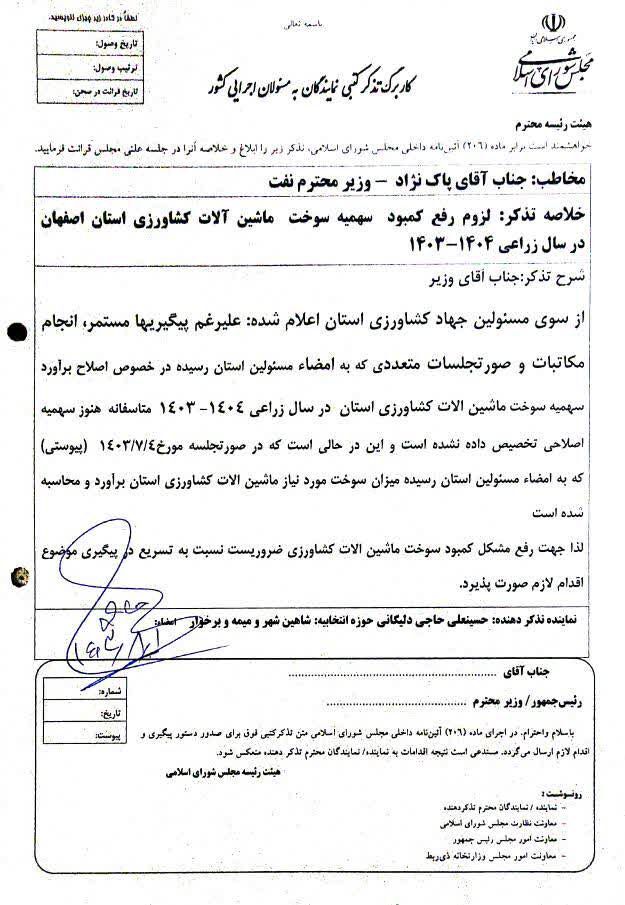 باسمه تعالی
لطفاً در کادر زیر چیزی ننویسید.
تاریخ وصول:
ترتیب وصول:
تاریخ قرائت در صحن:
جمهوری اسلامی ایران
مجلس شورای اسلامی
کاربرگ تذکر کتبی نمایندگان به مسئولان اجرایی کشور
هیئت رئیسه محترم
خواهشمند است برابر ماده (۲۰۶) آئین‌نامه داخلی مجلس شورای اسلامی، تذکر زیر را ابلاغ و خلاصه آنرا در جلسه علنی مجلس قرائت فرمایید.
مخاطب: جناب آقای پاک نژاد – وزیر محترم نفت
خلاصه تذکر: لزوم رفع کمبود سهمیه سوخت ماشین آلات کشاورزی استان اصفهان
در سال زراعی ۱۴۰۴-۱۴۰۳
شرح تذکر:جناب آقای وزیر
از سوی مسئولین جهاد کشاورزی استان اعلام شده: علیرغم پیگیریها مستمر، انجام
مکاتبات و صورتجلسات متعددی که به امضاء مسئولین استان رسیده در خصوص اصلاح برآورد
سهمیه سوخت ماشین الات کشاورزی استان در سال زراعی ۱۴۰۴- ۱۴۰۳ متاسفانه هنوز سهمیه
اصلاحی تخصیص داده نشده است و این در حالی است که در صورتجلسه مورخ۱۴۰۳/۷/۴ (پیوستی)
که به امضاء مسئولین استان رسیده میزان سوخت مورد نیاز ماشین الات کشاورزی استان برآورد و محاسبه
شده است
لذا جهت رفع مشکل کمبود سوخت ماشین الات کشاورزی ضروریست نسبت به تسریع در پیگیری موضوع
اقدام لازم صورت پذیرد.
نماینده تذکر دهنده: حسینعلی حاجی دلیگانی حوزه انتخابیه: شاهین شهر و میمه و برخوار امضاء:
جناب آقای ........................................
رئیس‌جمهور/ وزیر محترم ........................................
شماره:
تاریخ:
پیوست:
باسلام واحترام، در اجرای ماده (۲۰۶) آئین‌نامه داخلی مجلس شورای اسلامی متن تذکرکتبی فوق برای صدور دستور پیگیری و
اقدام لازم ارسال می‌گردد. مستدعی است نتیجه اقدامات به نماینده/ نمایندگان محترم تذکر دهنده منعکس شود.
هیئت رئیسه مجلس شورای اسلامی
رونوشت:
- نماینده / نمایندگان محترم تذکردهنده
- معاونت نظارت مجلس شورای اسلامی
- معاونت امور مجلس رئیس جمهور
- معاونت امور مجلس وزارتخانه ذی‌ربط